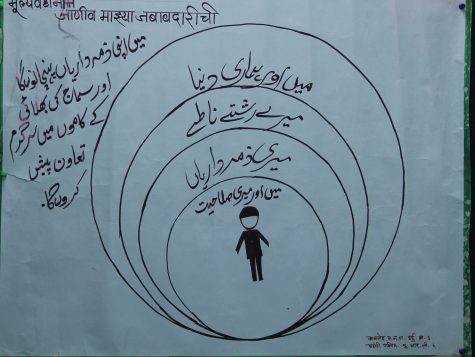 जाणीव माझ्या जबाबदारीची
میں اپنی ذمہ داریاں
اور سماج کی بھلائی
کے کاموں میں سرگرم
تعاون پیش
کروں گا۔
میں اور ہماری دنیا
میرے رشتے ناطے
میری ذمہ داریاں
میں اور میری صلاحیت